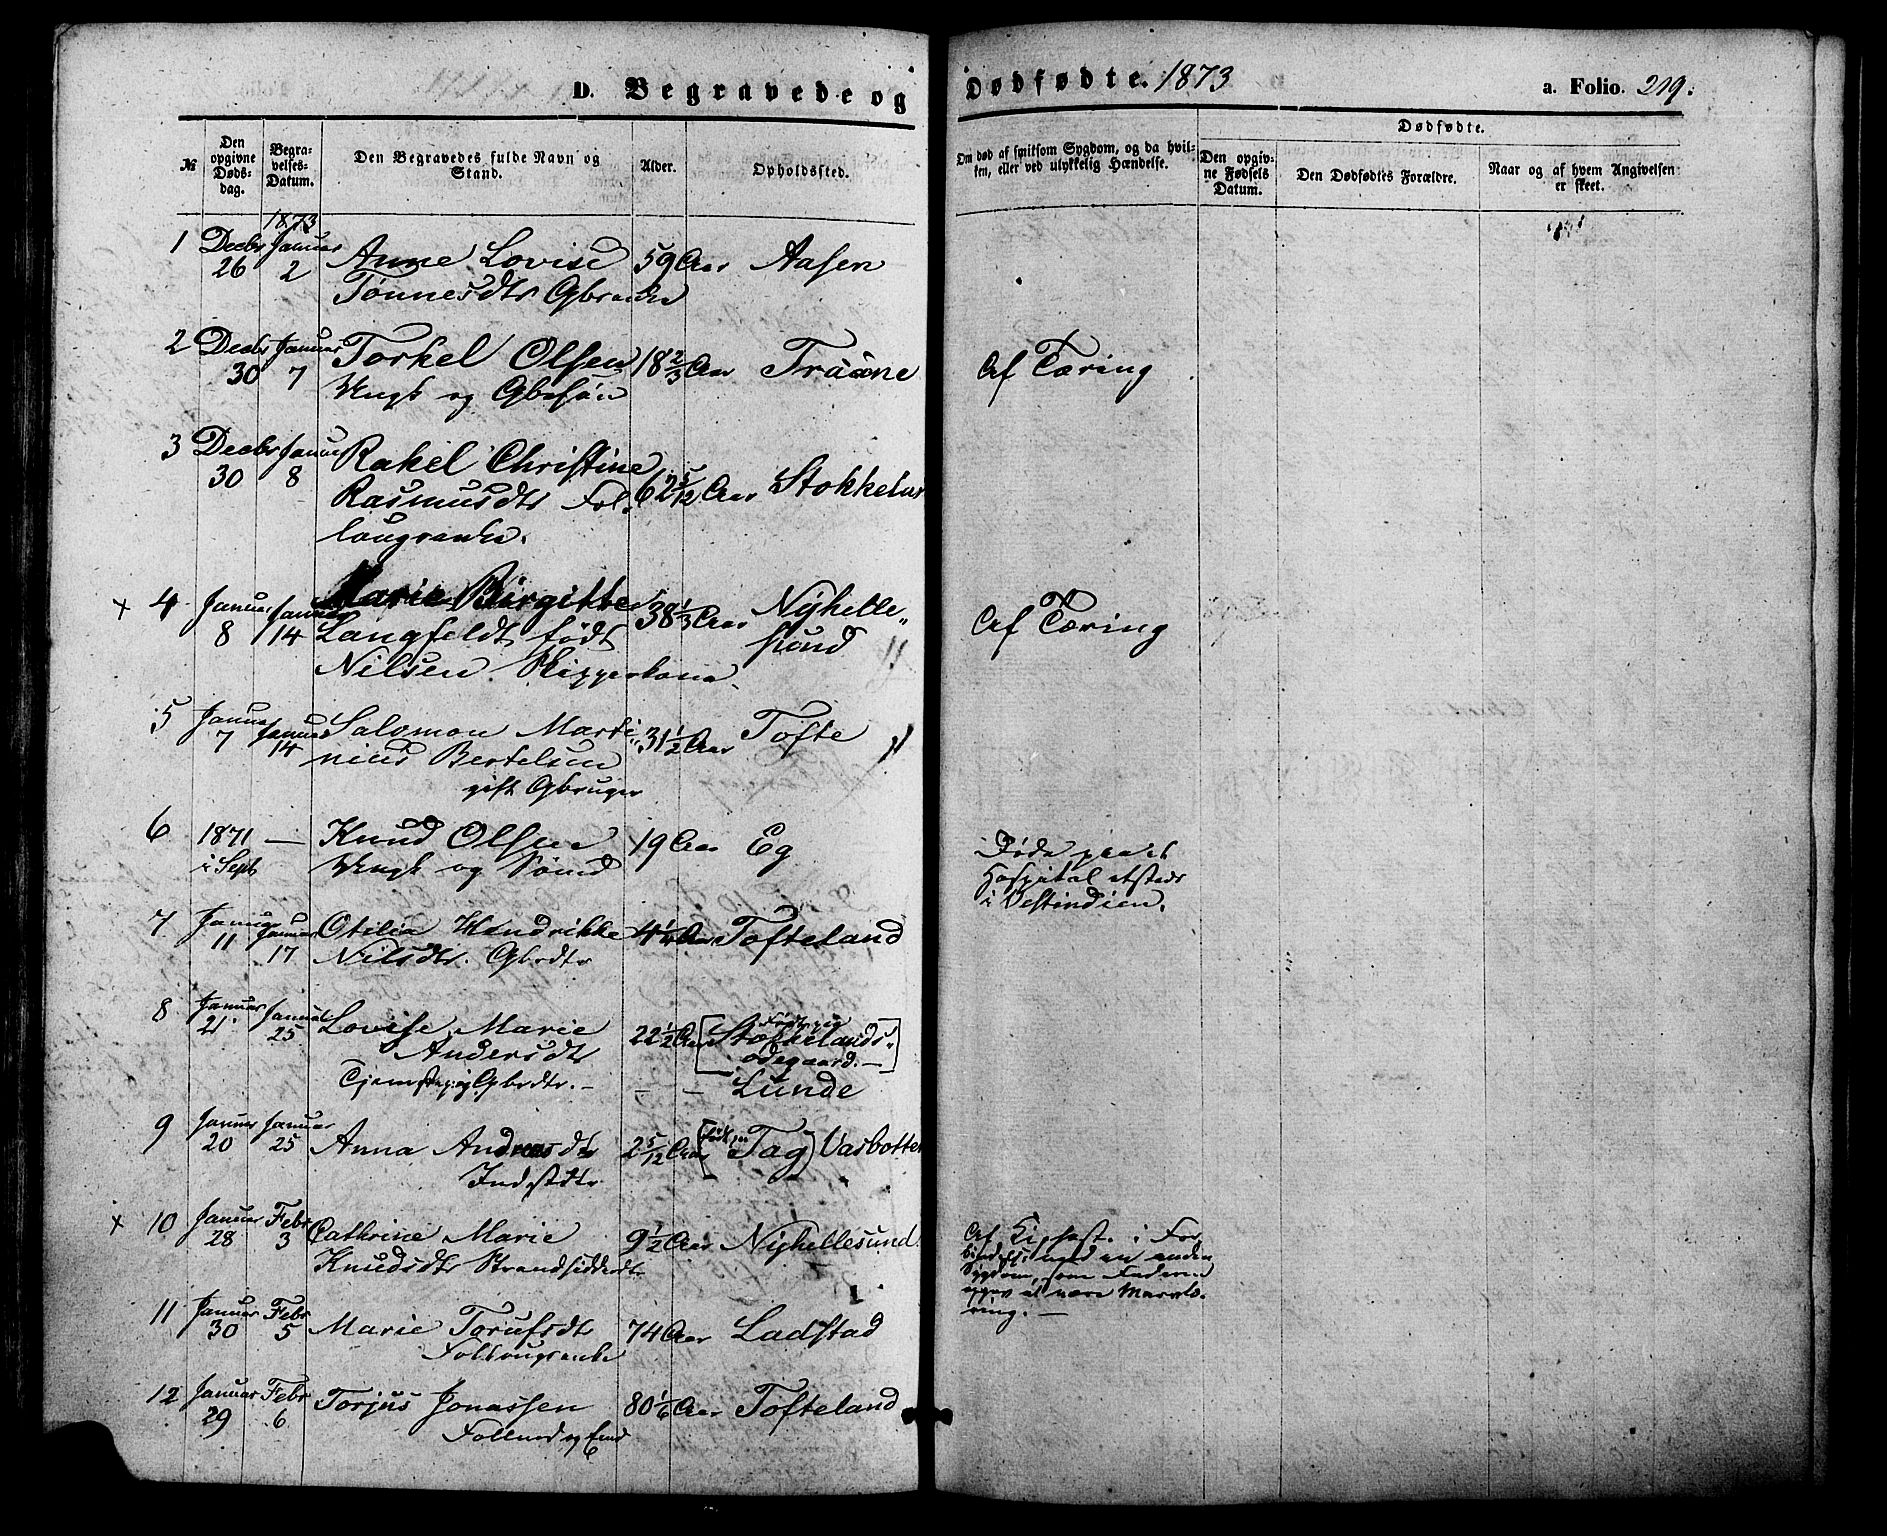 D. Begravede og Dødfødte. 1873 a. Folio. 219.
№
Den opgivne Dødsdag.
Begravelses-Datum.
Den Begravedes fulde Navn og Stand.
Alder.
Opholdssted.
Om død af smitsom Sygdom, og da hvilken, eller ved ulykkelig Hændelse.
Dødfødte.
Den opgivne Fødsels Datum.
Den Dødfødtes Forældre.
Naar og af hvem Angivelsen er skeet.
1873
1 Decbr 26 Januar 2 Anne Lovise 59 Aar Aasen
Tønnesdtr Gbrenke
2 Decbr 30 Januar 7 Torkel Olsen 18 2/3 Aar Traane Af Tæring
Ungk og Gbrsøn
3 Decbr 30 Januar 8 Rakel Christine 62 5/12 Aar Stokkeland
Rasmusdtr Fol-
laugsenke.
x 4 Januar 8 Januar 14 Marie Birgitte 38 1/3 Aar Nyhelle- Af Tæring
Langfeldt født sund
Nilsen. Skipperkona
5 Januar 7 Januar 14 Salomon Marti- 31 1/2 Aar Tofte
nius Bertelsen
gift Gbruger
6 1871 i Sept — Knud Olsen 19 Aar Eg
Ungk og Sømd
Hospital etsteds
i Vestindien.
7 Januar 11 Januar 17 Otilia Hendrikke 4 1/4 Aar Tofteland
Nilsdtr. Gbrdtr
8 Januar 21 Januar 25 Lovise Marie 22 1/2 Aar [Født paa Stokkelands-
Andersdtr ødegaard.—]
Tjenstepig Gbrdtr. — — — Lunde
9 Januar 20 Januar 25 Anna Andreasdtr 2 5/12 Aar (født paa Tag) Varbotten
Indstdtr
x 10 Januar 28 Febr 3 Cathrine Marie 9 1/2 Aar Nyhellesund.
Knudsdtr Strandsidderdtr
i For-
bindelse med en anden
Sygdom, som Faderen
opgav at være Marvtæ-
ring. —
11 Januar 30 Febr 5 Marie Torufsdtr 74 Aar Ladstad
Follougsenke
12 Januar 29 Febr 6 Torjus Jonassen 80 1/6 Aar Tofteland